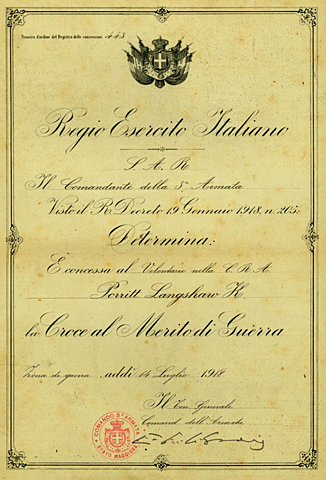 Numero d'ordine del Registro delle concessioni 443
Regio Esercito Italiano
S. A. R.
Il Comandante della 3ª Armata
Visto il R. Decreto 19 Gennaio 1918, n. 205:
Determina:
È concessa al Volontario nella C. R. A.
Porritt Langshaw K.
la Croce al Merito di Guerra
Zona di guerra addì 14 Luglio 1918
Il Ten. Generale
Comand. dell'Armata
COMANDO 3ª ARMATA
STATO MAGGIORE